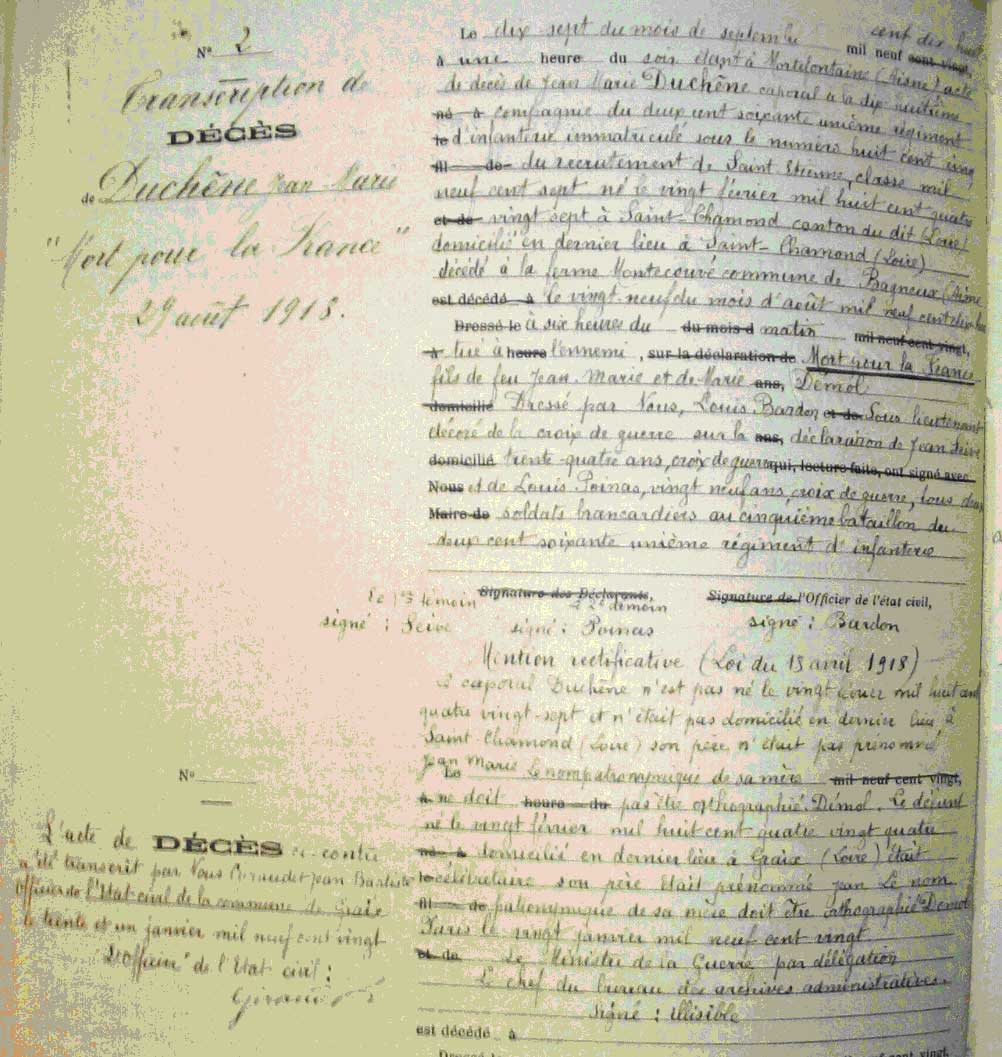 N° 2
Transcription de
DÉCÈS
de Duchêne Jean Marie
"Mort pour la France"
29 août 1918.
Le dix sept du mois de septembre mil neuf cent vingt, cent dix huit
à une heure du soir étant à Mortefontaine (Aisne) acte
de décès de Jean Marie Duchêne caporal à la dix huitième
né à compagnie du deux cent soixante unième régiment
le d'infanterie immatriculé sous le numéro huit cent cinq
fil de du recrutement de Saint Etienne, classe mil
neuf cent sept né le vingt février mil huit cent quatre
et de vingt sept à Saint-Chamond canton du dit (Loire)
domicilié en dernier lieu à Saint-Chamond (Loire)
décédé à la ferme Montecouvé commune de Bagneux (Aisne
est décédé à le vingt neuf du mois d'août mil neuf cent dix huit
Dressé le à six heures du du mois d matin mil neuf cent vingt,
à tué à heure l'ennemi, sur la déclaration de Mort pour la France
fils de feu Jean Marie et de Marie ans, Démol
domicilié Dressé par Nous, Louis Bardon et de Sous lieutenant
décoré de la croix de guerre sur la ans, déclaration de Jean Seive
domicilié trente-quatre ans, croix de guerre qui, lecture faite, ont signé avec
Nous et de Louis Poinas, vingt neuf ans, croix de guerre, tous deux
Maire de soldats brancardiers au cinquième bataillon du
deux cent soixante unième régiment d'infanterie
Signature des Déclarants, Signature de l'Officier de l'état civil,
Le 1er témoin Le 2e témoin
signé : Seive signé : Poinas signé : Bardon
Mention rectificative (Loi du 18 avril 1918)
Le caporal Duchêne n'est pas né le vingt février mil huit cent
quatre vingt-sept et n'était pas domicilié en dernier lieu à
Saint Chamond (Loire) son père n'était pas prénommé
Jean Marie
Le Le nom patronymique de sa mère mil neuf cent vingt,
à ne doit heure du pas être orthographié Démol. Le défunt
né le vingt février mil huit cent quatre vingt quatre
né à domicilié en dernier lieu à Graix (Loire) était
le célibataire son père était prénommé Jean Le nom
fil de patronymique de sa mère doit être orthographié Demol
Paris le vingt janvier mil neuf cent vingt
et de Le Ministre de la Guerre par délégation
Le chef du bureau des archives administratives.
Signé : illisible
est décédé à
Dressé le cent vingt,
N°
L'acte de DÉCÈS ci-contre
a été transcrit par Nous Giraudet Jean Baptiste
officier de l'Etat civil de la commune de Graix
le trente et un janvier mil neuf cent vingt
L'officier de l'Etat civil :